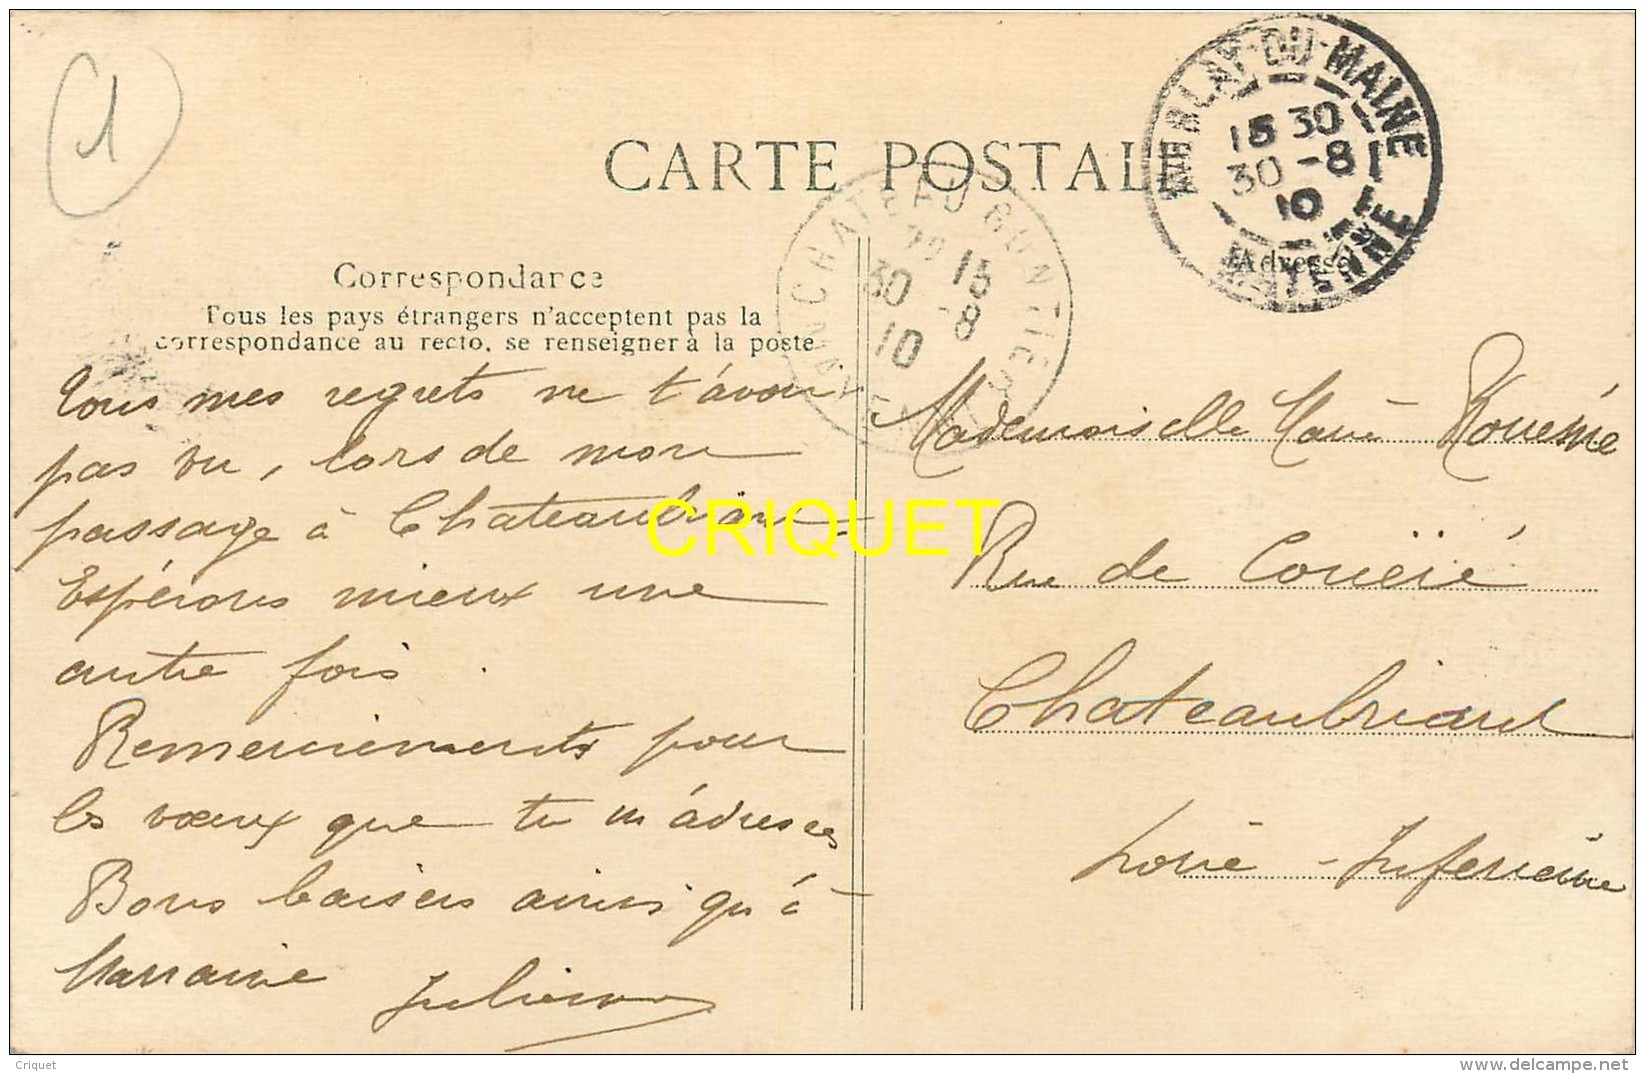 1
CARTE POSTALE
Correspondance
Tous les pays étrangers n'acceptent pas la
correspondance au recto, se renseigner à la poste
Tous mes regrets ne t'avoir
pas vu, lors de mon
passage à Chateaubriant
Espérons mieux une
autre fois.
Remerciements pour
les vœux que tu m'adresses
Bons baisers ainsi qu'à
Marraine
Julienne
CHATEAU GONTIER
15
30 -8
10
MAYENNE
DU MAINE
15 30
30 -8
10
MAYENNE
Adresse
Mademoiselle Marie
Rue de Couëré
Chateaubriand
Loire-Inférieure
CRIQUET
Criquet
www.delcampe.net